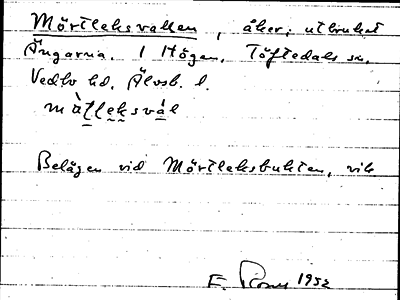 Mörtleksvallen, åker; utbrukat
Ängarna. 1 Högen, Töftedals sn,
Vedbo hd, Älvsb. l.
Belägen vid Mörtleksbukten, vik
F. 1952